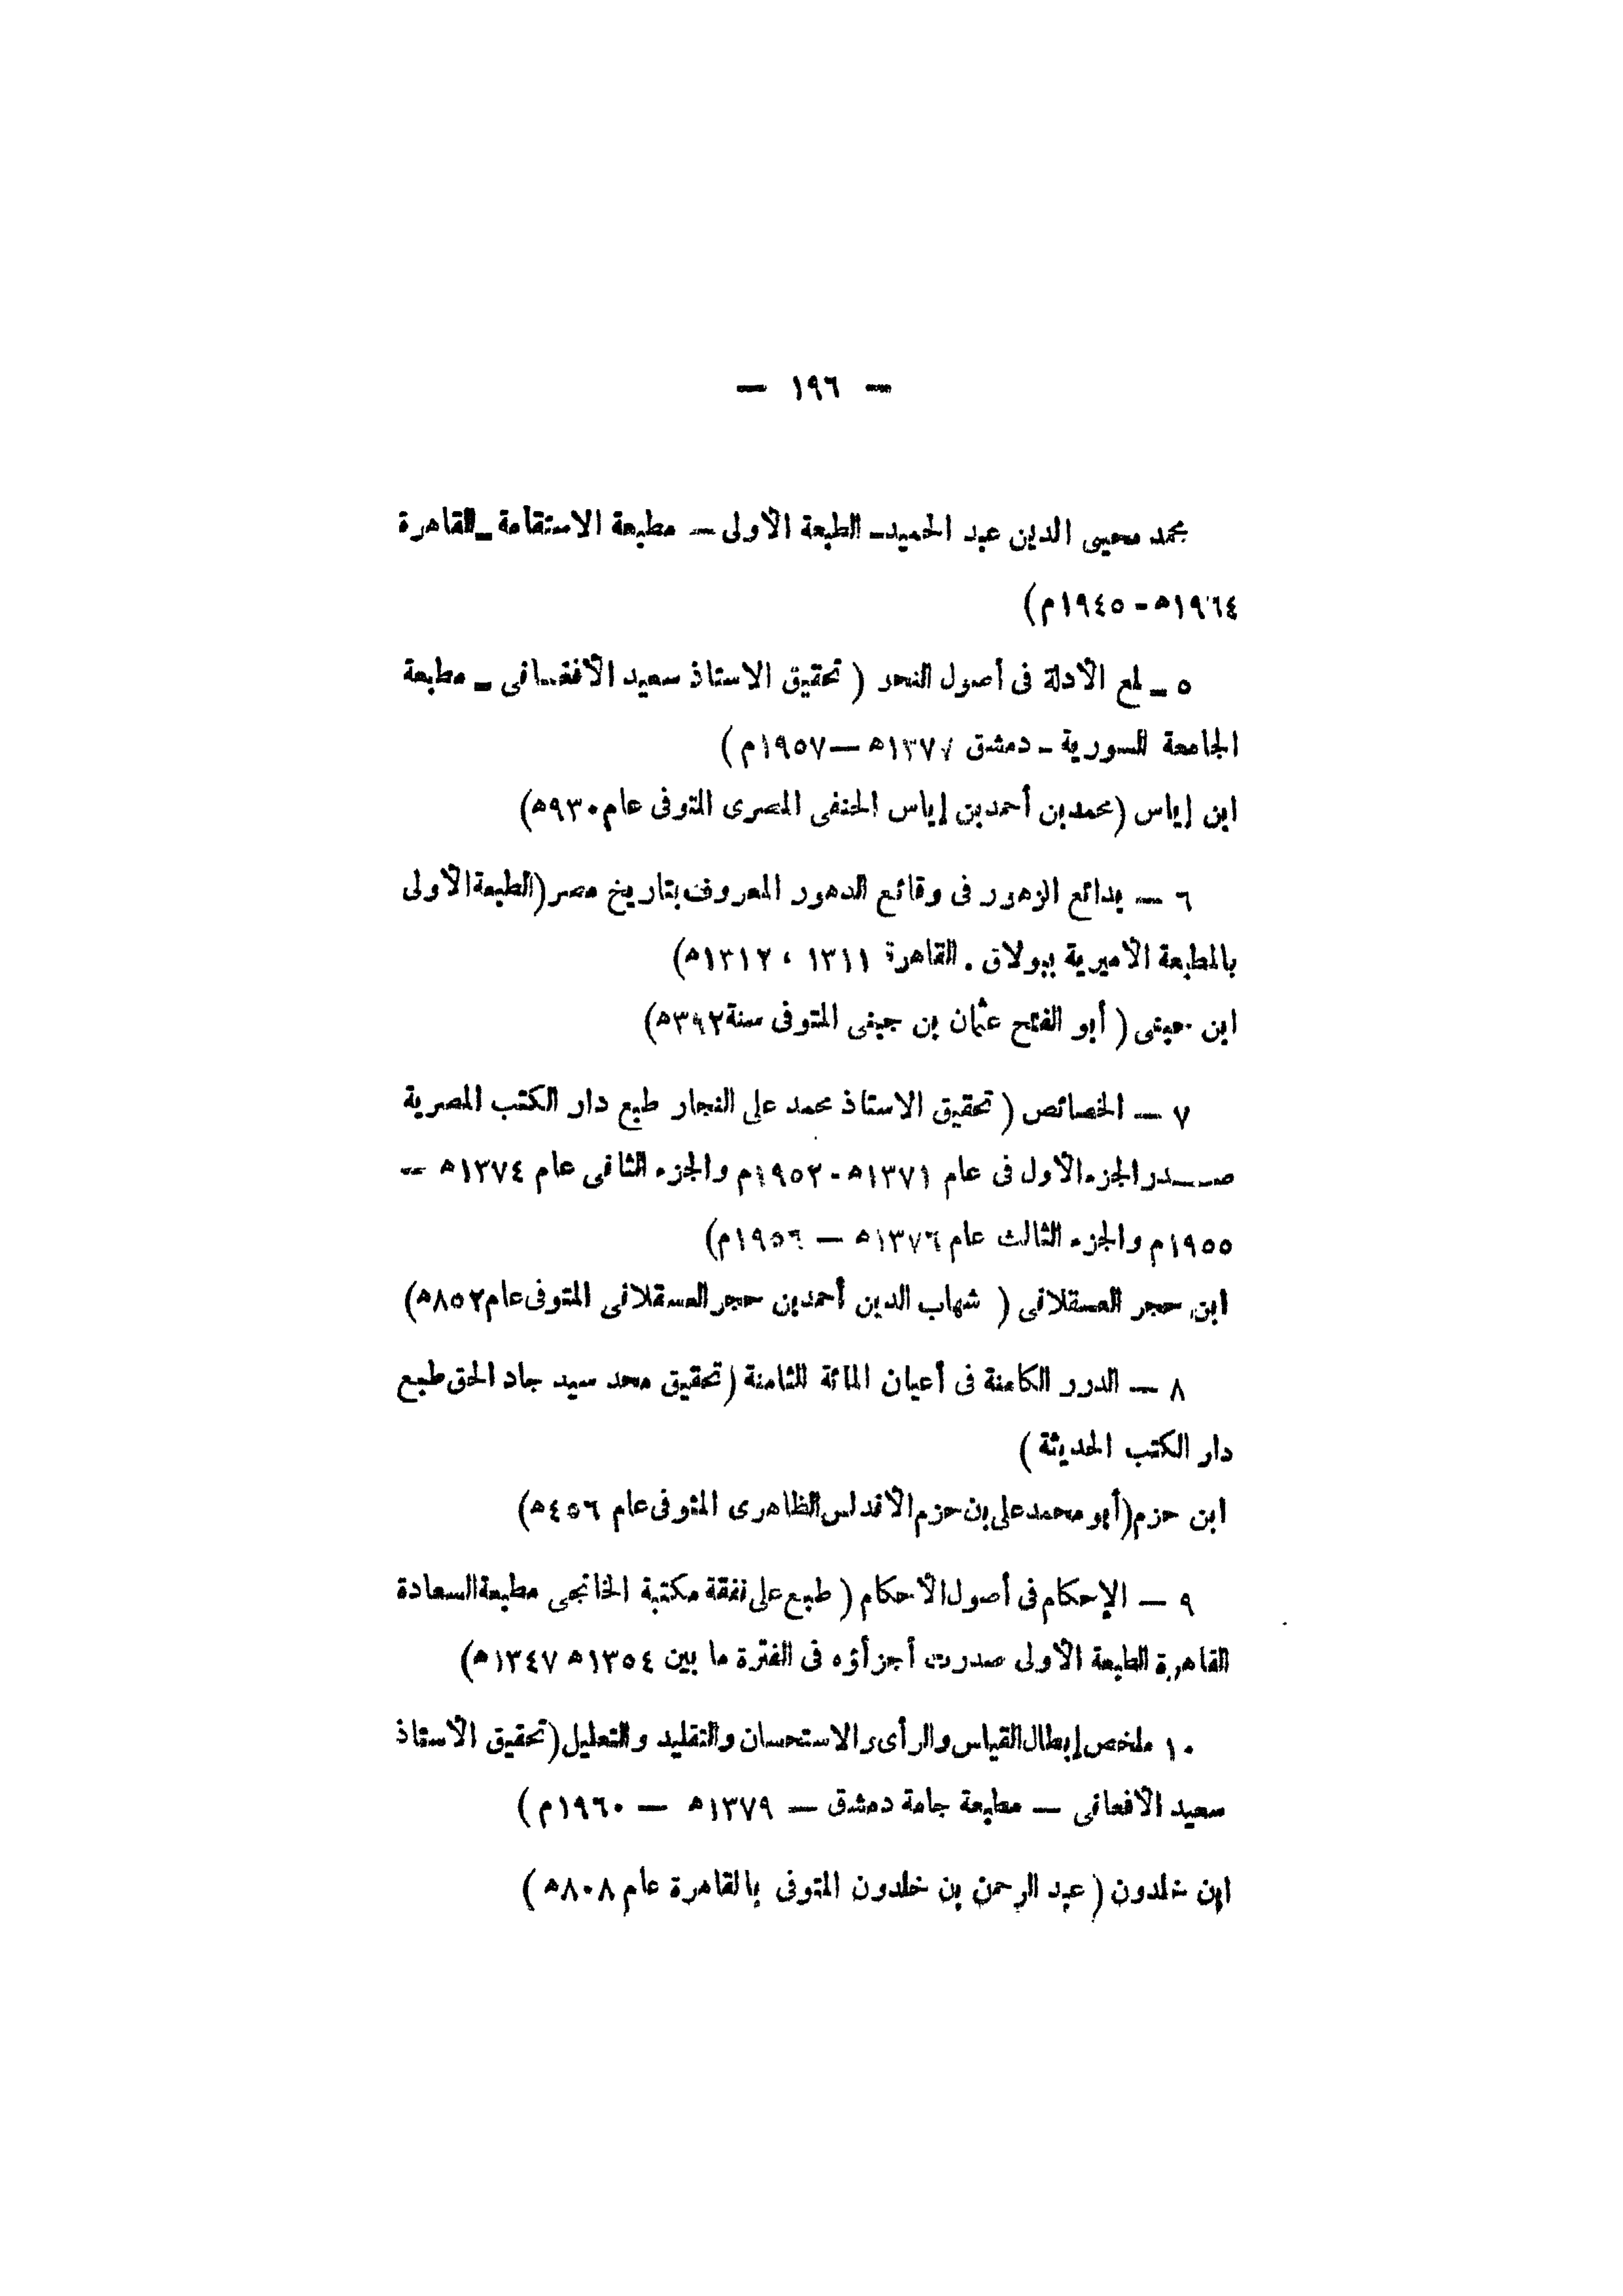 — ١٩٦ —
محمد محيي الدين عبد الحميد ـ الطبعة الأولى — مطبعة الاستقامة ـ القاهرة
١٩٦٤ﻫ - ١٩٤٥م)
٥ ـ لمع الأدلة فى أصول النحر ( تحقيق الاستاذ سعيد الأفغـانى ـ مطبعة
الجامعة السورية ـ دمشق ١٣٧٧ﻫ — ١٩٥٧م )
ابن إياس (محمد بن أحمد بن إياس الحنفى المصرى المتوفى عام ٩٣٠ﻫ)
٦ — بدائع الزهور فى وقائع الدهور المعروف بتاريخ مصر (الطبعة الأولى
بالمطبعة الأميرية ببولاق . القاهرة ١٣١١ ، ١٣١٢ﻫ)
ابن جنى ( أبو الفتح عثمان بن جنى المتوفى سنة ٣٩٢ﻫ)
٧ — الخصائص ( تحقيق الاستاذ محمد على النجار طبع دار الكتب المصرية
صـــدر الجزء الأول فى عام ١٣٧١ﻫ - ١٩٥٢م والجزء الثانى عام ١٣٧٤ﻫ —
١٩٥٥م والجزء الثالث عام ١٣٧٦ﻫ — ١٩٥٦م)
ابن حجر العسقلانى ( شهاب الدين أحمد بن حجر العسقلانى المتوفى عام ٨٥٢ﻫ)
٨ — الدرر الكامنة فى أعيان المائة الثامنة ( تحقيق محمد سيد جاد الحق طبع
دار الكتب الحديثة )
ابن حزم (أبو محمد على بن حزم الأندلس الظاهرى المتوفى عام ٤٥٦ﻫ)
٩ — الإحكام فى أصول الأحكام ( طبع على نفقة مكتبة الخانجى مطبعة السعادة
القاهرة الطبعة الأولى صدرت أجزأؤه فى الفترة ما بين ١٣٥٤ﻫ ١٣٤٧ﻫ)
١٠ ملخص إبطال القياس والرأى والاستحسان والتقليد والتعليل (تحقيق الأستاذ
سعيد الأفعانى — مطبعة جامة دمشق — ١٣٧٩ﻫ — ١٩٦٠م )
ابن خلدون ( عبد الرحمن بن خلدون المتوفى بالقاهرة عام ٨٠٨ﻫ )